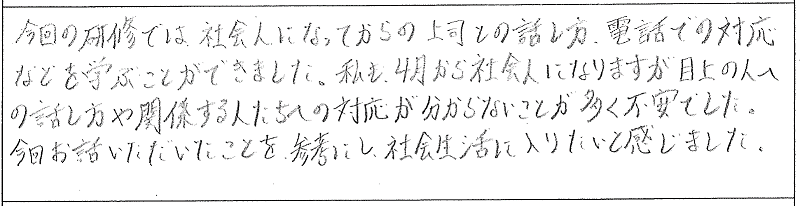 今回の研修では、社会人になってからの上司との話し方、電話での対応
などを学ぶことができました。私も、4月から社会人になりますが目上の人へ
の話し方や関係する人たちへの対応が分からないことが多く不安でした。
今回お話いただいたことを、参考にし、社会生活に入りたいと感じました。